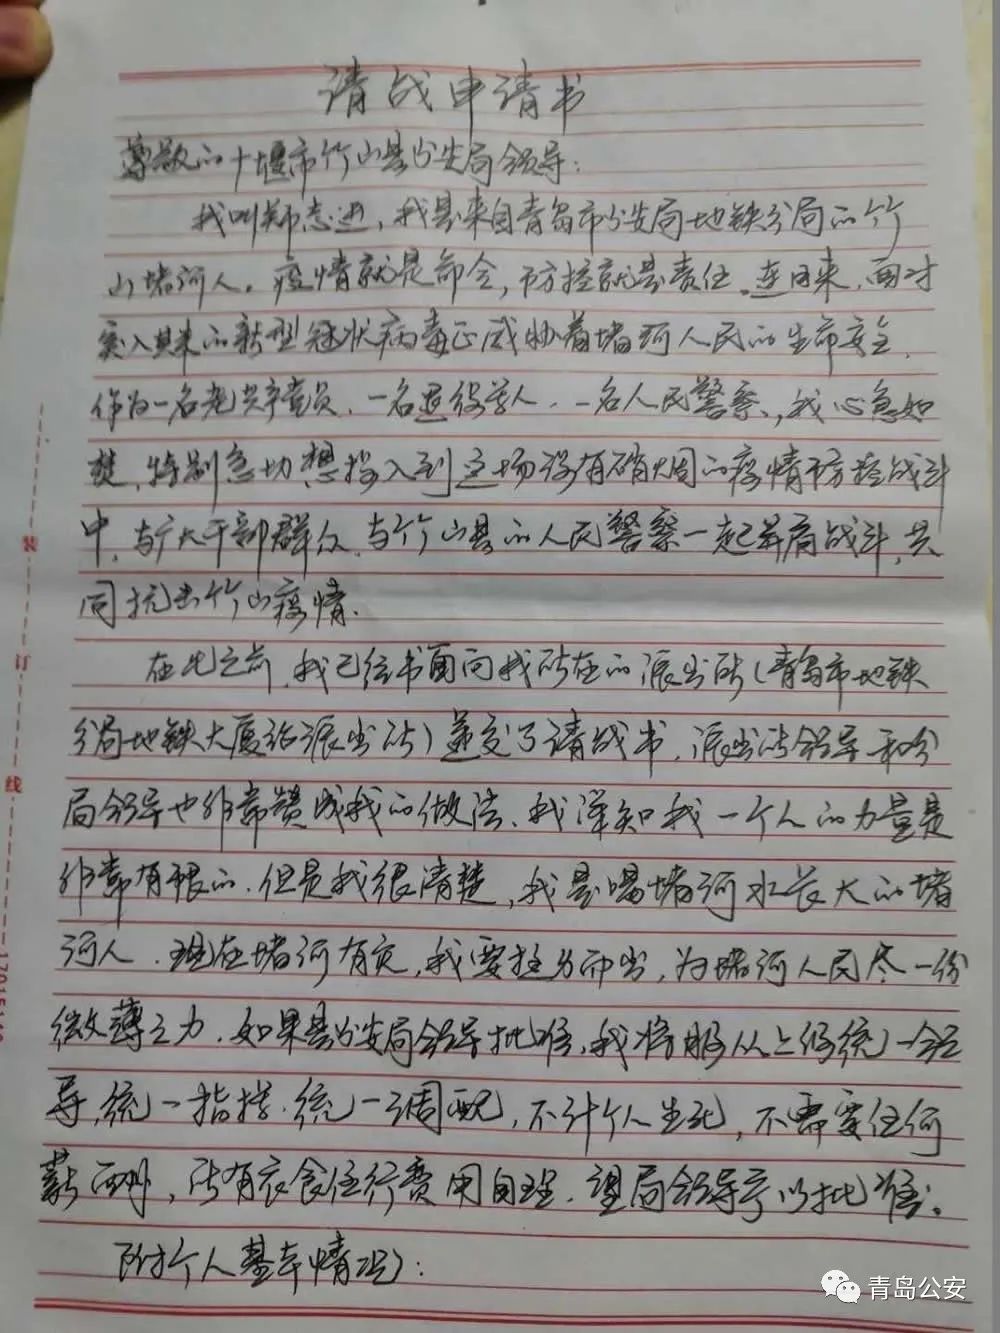 请战申请书
尊敬的十堰市竹山县公安局领导：
我叫郑志进，我是来自青岛市公安局地铁分局的竹
山堵河人。疫情就是命令，防控就是责任。连日来，面对
突入其来的新型冠状病毒正威胁着堵河人民的生命安全，
作为一名老共产党员、一名退役军人、一名人民警察，我心急如
焚，特别急切想投入到这场没有硝烟的疫情防控战斗
中，与广大干部群众、与竹山县的人民警察一起并肩战斗，共
同抗击竹山疫情.
在此之前，我已经书面向我所在的派出所（青岛市地铁
分局地铁大厦站派出所）递交了请战书，派出所领导和分
局领导也非常赞成我的做法、我深知我一个人的力量是
非常有限的，但是我很清楚，我是喝堵河水长大的堵
河人．现在堵河有灾，我要挺身而出，为堵河人民尽一份
微薄之力．如果县公安局领导批准，我将服从上级统一领
导、统一指挥、统一调配，不计个人生死，不需要任何
薪酬，所有衣食住行费用自理．望局领导予以批准。
附个人基本情况：
装
订
线
青岛公安